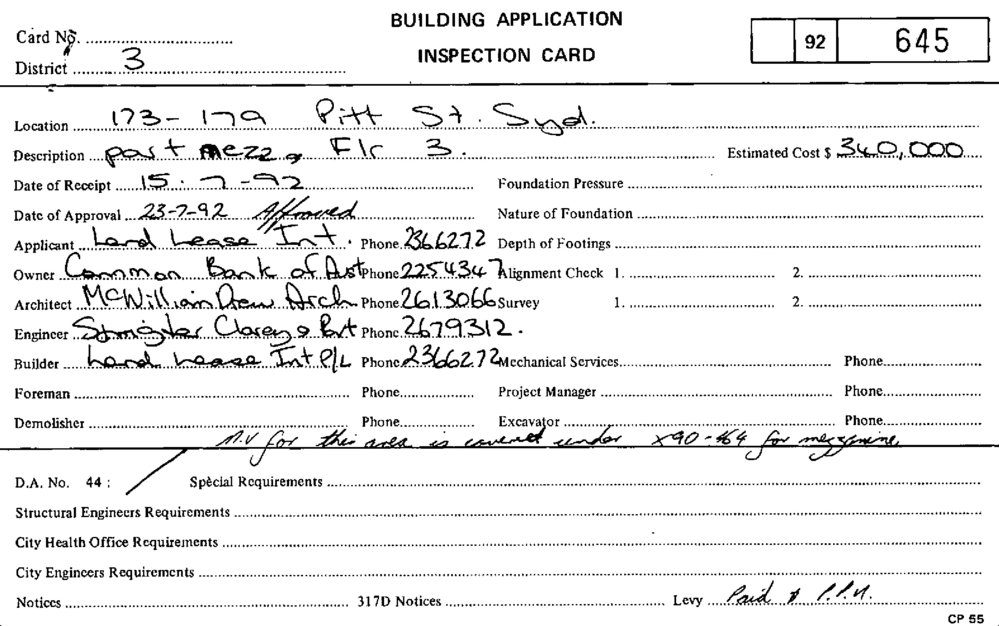 BUILDING APPLICATION
INSPECTION CARD
Card No. 
District 3
92 645
Location 173-179 Pitt St. Syd.
Description part mezz, Flr 3. Estimated Cost $ 340,000
Date of Receipt 15.7-92 Foundation Pressure
Date of Approval 23-7-92 Approved Nature of Foundation
Applicant Lend Lease Int. Phone 2366272 Depth of Footings
Owner Common Bank of Aust Phone 2254347 Alignment Check 1. 2.
Architect McWilliam Drew Arch Phone 2613066 Survey 1. 2.
Engineer Phone 2679312.
Builder Lend Lease Int P/L Phone 2366272 Mechanical Services Phone
Foreman Phone Project Manager Phone
Demolisher Phone Excavator Phone
for this area is covered under x90-464 for mezzanine.
D.A. No. 44: / Special Requirements
Structural Engineers Requirements
City Health Office Requirements
City Engineers Requirements
Notices 317D Notices Levy Paid
CP 55